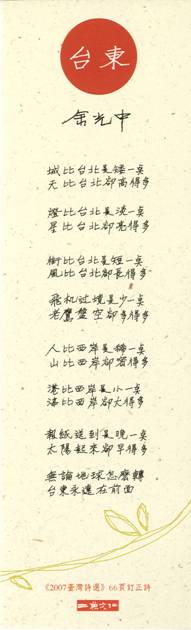 台東
余光中
城比台北是矮一奌
天比台北卻高得多
燈比台北是淡一奌
星比台北卻亮得多
街比台北是短一奌
風比台北卻長得多
飛机过境是少一奌
老鷹盤空卻多得多
人比西岸是稀一奌
山比西岸卻密得多
港比西岸是小一奌
海比西岸卻大得多
報紙送到是晚一奌
太陽起來卻早得多
無論地球怎麼轉
台東永遠在前面
《2007臺灣詩選》66頁訂正詩
二魚文化